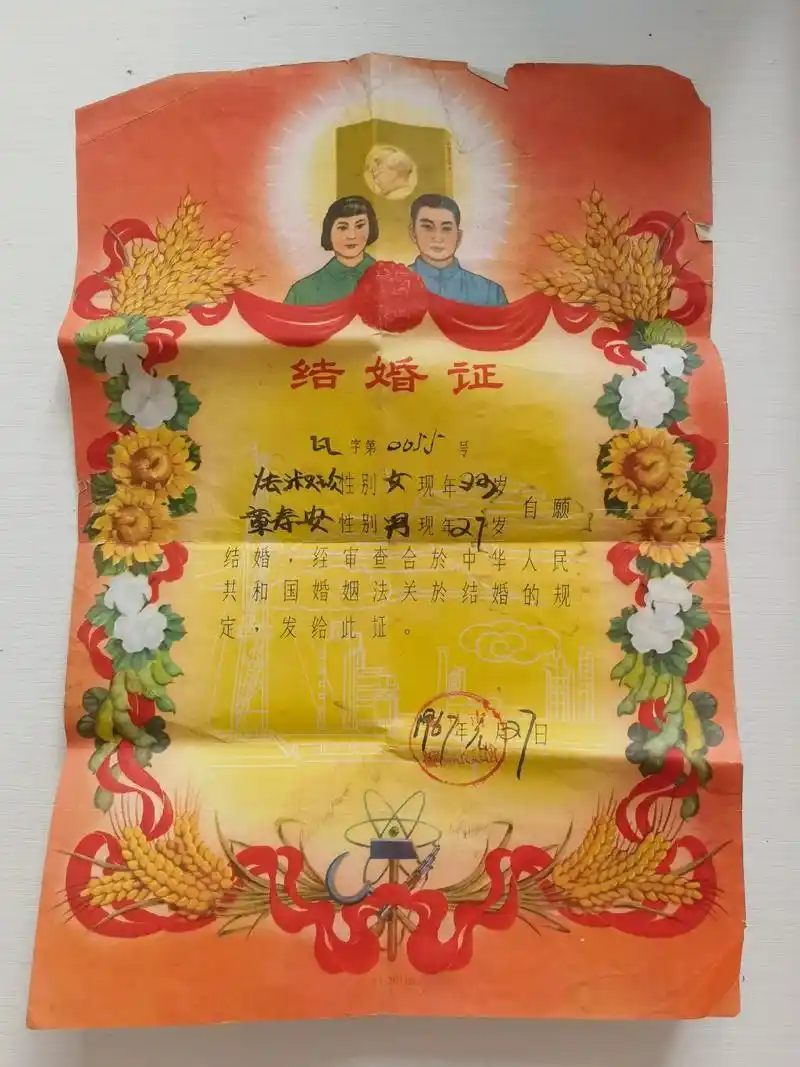 结婚证
字第0055号
性别女现年22岁
章春安性别男现年27岁
自愿
结婚，经审查合於中华人民
共和国婚姻法关於结婚的规
定，发给此证。
1967年 月27日